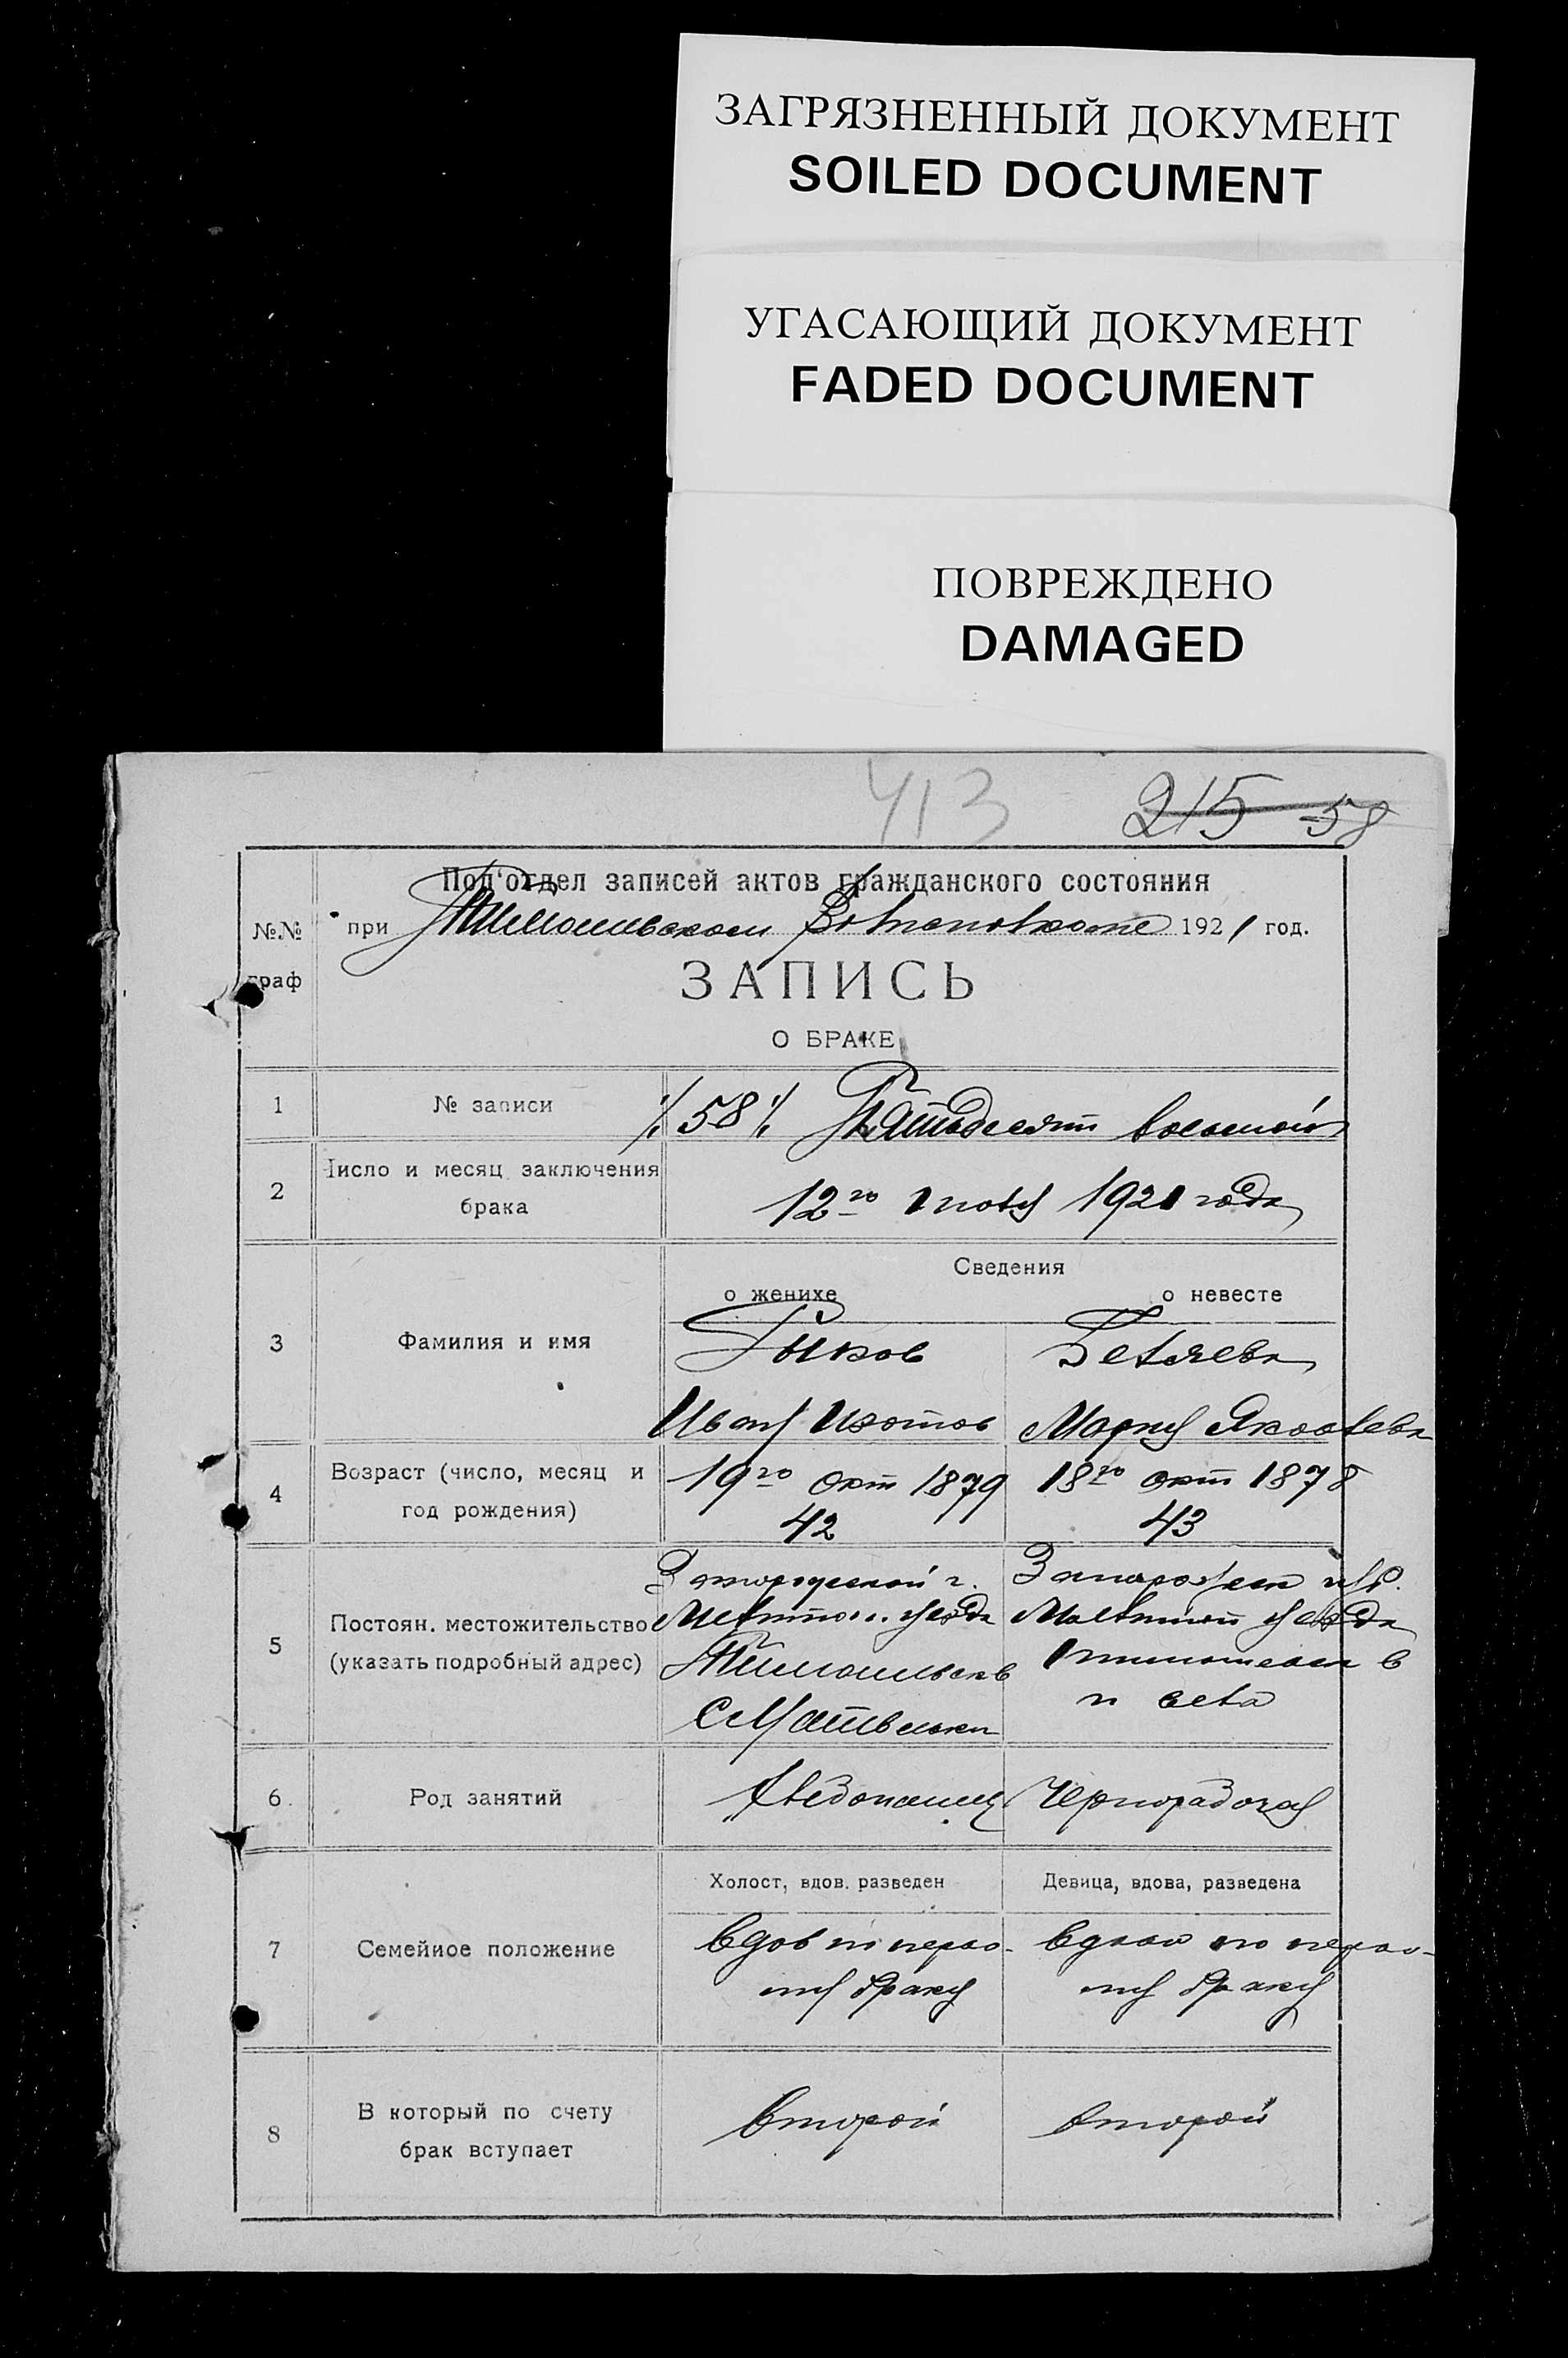 ЗАГРЯЗНЕННЫЙ ДОКУМЕНТ
SOILED DOCUMENT
УГАСАЮЩИЙ ДОКУМЕНТ
FADED DOCUMENT
ПОВРЕЖДЕНО
DAMAGED
413 215 58
Под'отдел записей актов гражданского состояния
№№ при 1921 год.
граф
ЗАПИСЬ
О БРАКЕ
1 № записи 58 Пятьдесят восьмой
2 Число и месяц заключения
брака
12го 1921 года
Сведения
о женихе о невесте
3 Фамилия и имя
Иван Изотов Мария Яковлевна
4 Возраст (число, месяц и
год рождения)
19го окт 1879 18го окт 1878
42 43
5 Постоян. местожительство
(указать подробный адрес)
Запорожской г.
уезда уезда
6. Род занятий
Хлебопашец Чернорабочая
Холост, вдов. разведен Девица, вдова, разведена
7 Семейное положение
вдов по перво- вдова по перво-
му браку му браку
8 В который по счету
брак вступает
второй второй